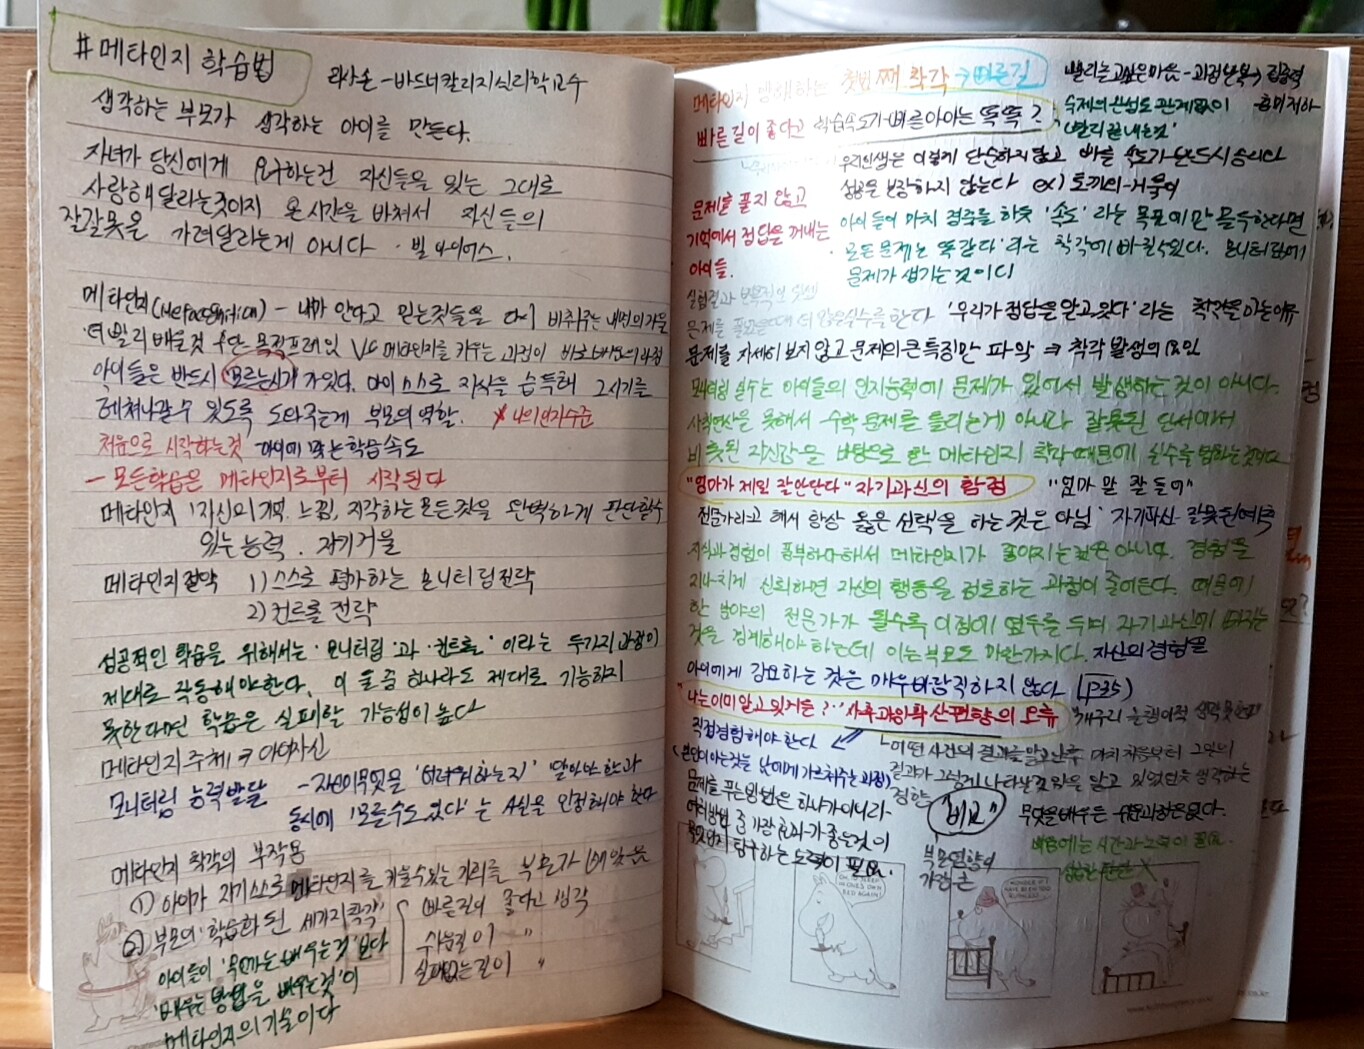 #메타인지 학습법
리사손-바드너칼리지심리학교수
생각하는 부모가 생각하는 아이를 만든다.
자녀가 당신에게 요구하는건 자신들을 있는 그대로
사랑해 달라는것이지 온 시간을 바쳐서 자신들의
잘잘못을 가려달라는게 아니다 · 빌 아이어스.
메타인지 - 내가 안다고 믿는것들을 다시 비춰주는 내면의 거울
더 빨리 배울것 VS 메타인지를 키우는 과정이 바로 배움의 과정
아이들은 반드시 모르는시기가 있다. 아이 스스로 지식을 습득해 그시기를
헤쳐나갈수 있도록 도와주는게 부모의 역할. 나의인지수준
처음으로 시작하는것 아이에 맞는 학습속도
- 모든학습은 메타인지로부터 시작된다
메타인지 '자신의 기억, 느낌, 지각하는 모든것을 완벽하게 판단할수
있는 능력. 자기거울
메타인지전략 1) 스스로 평가하는 모니터링전략
2) 컨트롤 전략
성공적인 학습을 위해서는 '모니터링'과 '컨트롤' 이라는 두가지과정이
제대로 작동해야한다. 이 둘 중 하나라도 제대로 기능하지
못한다면 학습은 실패할 가능성이 높다
메타인지 주체 아이자신
모니터링 능력발달 - 자신이무엇을 '어려워하는지' 알아야 함과
동시에 '모를수도있다'는 사실을 인정해야 한다
메타인지 착각의 부작용
① 아이가 자기스스로 메타인지를 키울수있는 기회를 부모가
② 부모의 '학습화된 세가지착각' 빠른길이 좋다고 생각
쉬운길이 "
실패없는길이 "
아이들이 '무언가를 배우는것' 보다
'배우는 방법을 배우는것'이
메타인지의 기술이다
메타인지 방해하는 첫번째 착각→빠른길
빨리하고싶은마음-과정난독→집중력
빠른 길이 좋다고 학습속도가 빠른 아이는 똑똑?
숙제의완성도 관계없이 흥미저하
'빨리 끝내는것'
우리인생은 이렇게 단순하지 않고 빠른 속도가 반드시 승리나
성공을 보장하지 않는다 ex) 토끼와-거북이
문제를 풀지 않고
기억에서 정답을 꺼내는
아이들.
아이들이 마치 경주를 하듯 '속도' 라는 목표에만 몰두한다면
'모든문제는 똑같다'라는 착각에 빠질수있다. 모니터링에
문제가 생기는것이다
실험결과
문제를 더 많은실수를한다 '우리가 정답을 알고있다'라는 착각을 하는이유
문제를 자세히 보지않고 문제의 큰 특징만 파악 ⇒ 착각 발생의 요인
모니터링 실수는 아이들의 인지능력에 문제가 있어서 발생하는 것이 아니다.
사칙연산을 못해서 수학 문제를 틀리는게 아니라 잘못된 단서에서
비롯된 자신감을 바탕으로 한 메타인지 착각때문에 실수를 범하는것이다
"엄마가 제일 잘안단다" 자기과신의 함정 "엄마 말 잘 들어"
전문가라고 해서 항상 옳은 선택을 하는 것은 아님 '자기과신 잘못된예측
지식과 경험이 풍부하다해서 메타인지가 좋아지는것은 아니다. 경험을
지나치게 신뢰하면 자신의 행동을 검토하는 과정이 줄어든다. 때문에
한 분야의 전문가가 될수록 이점에 염두를 두며 자기과신에 빠지는
것을 경계해야 하는데 이는부모도 마찬가지다. 자신의 경험을
아이에게 강요하는 것은 매우바람직하지 않다 (P35)
"나는이미알고있거든?" 사후과잉확신편향의 오류
직접경험해야한다
(본인이 아는것을 남에게 가르쳐주는 과정)
어떤 사건의 결과를 알고난후 마치 처음부터 그일의
결과가 그렇게 나타날것 임을 알고 있었던듯 생각하는
경향
문제를 푸는방법은 하나가아니라
여러방법 중 가장 효과가 좋은것이
무엇인지 탐구하는 노력이 필요.
"비교"
부모영향이
가장 큰
배움에는 시간과 노력이 필요